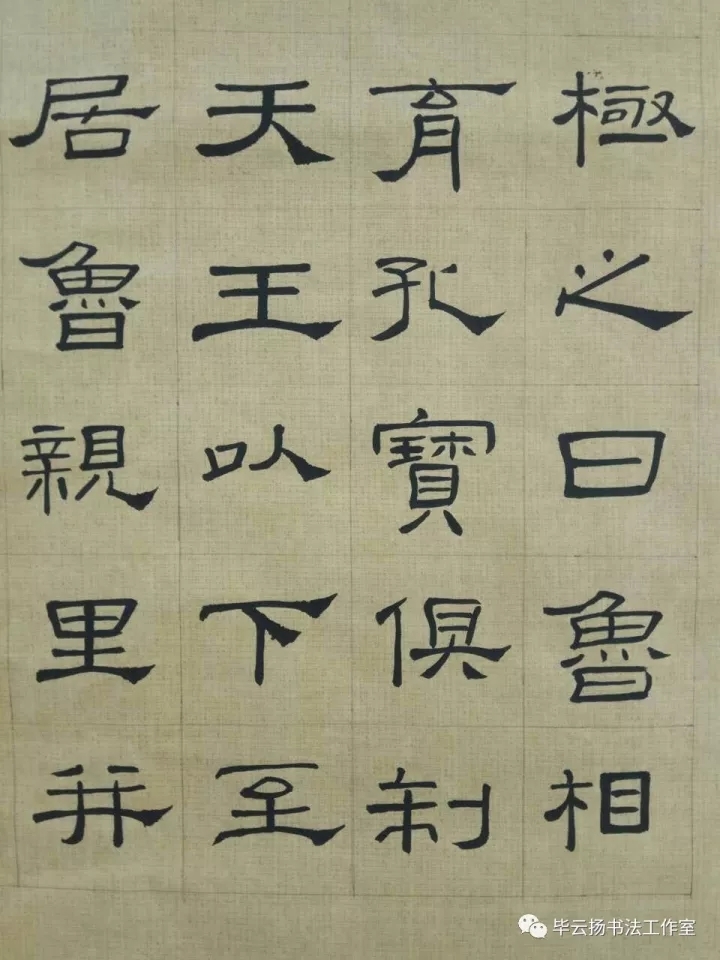 極之曰魯相
育孔寶俱制
天王以下至
居魯親里并
毕云扬书法工作室